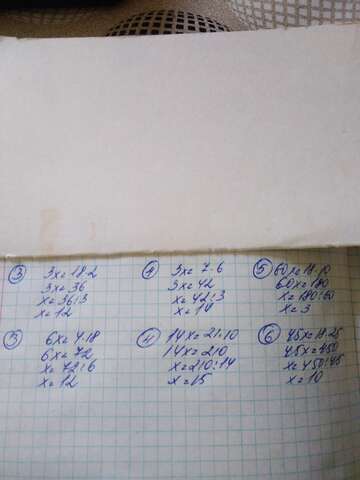 ③ 3x=18·2
3x=36
x=36:3
x=12
④ 3x=7·6
3x=42
x=42:3
x=14
⑤ 60x=18·10
60x=180
x=180:60
x=3
③ 6x=4·18
6x=72
x=72:6
x=12
④ 14x=21·10
14x=210
x=210:14
x=15
⑥ 45x=18·25
45x=450
x=450:45
x=10